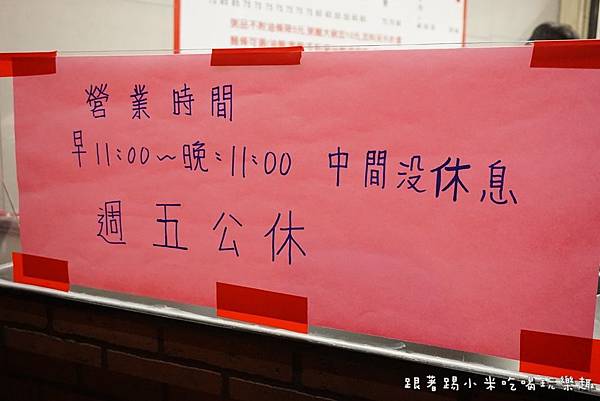 營業時間
早11:00~晚:11:00 中間没休息
週五公休
跟著踢小米吃喝玩樂趣